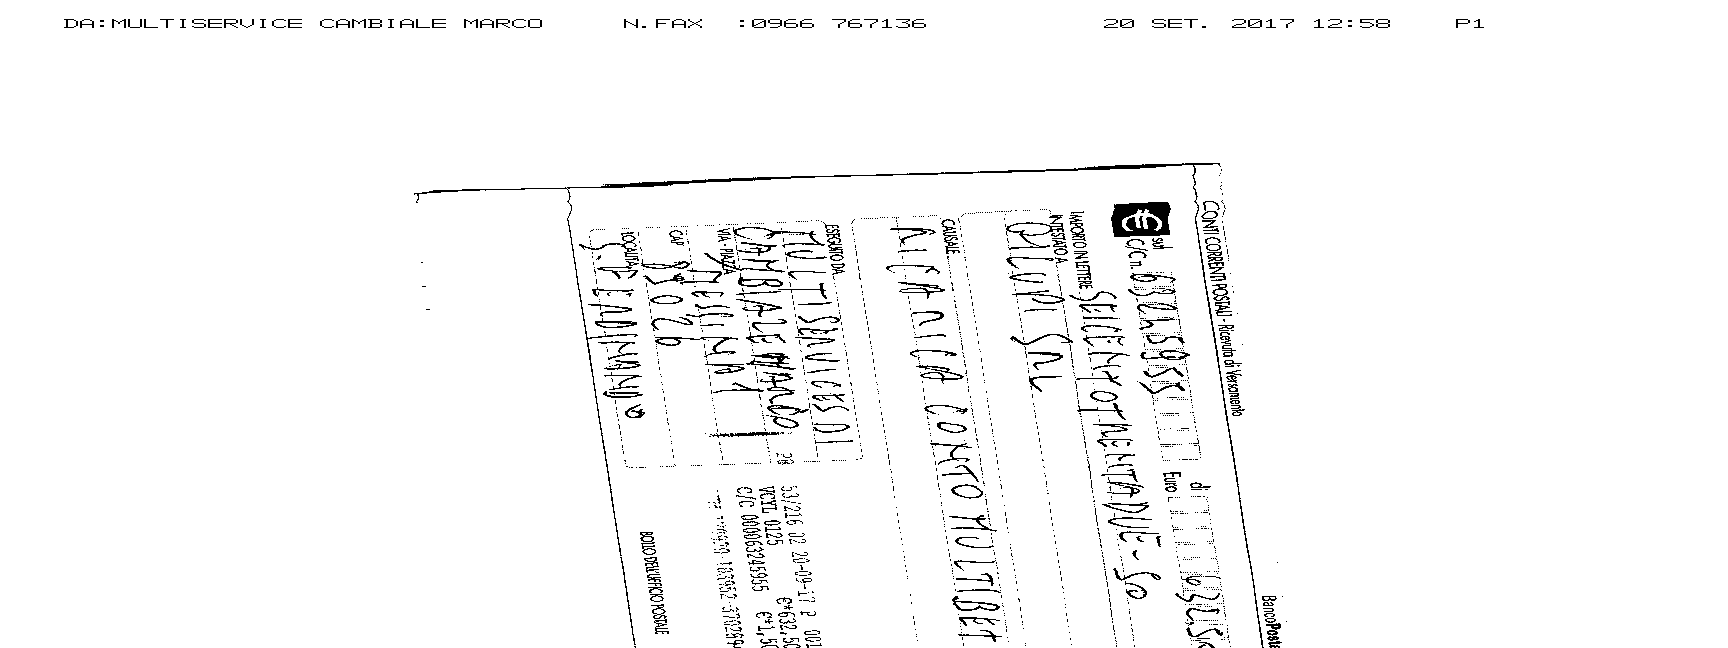 DA:MULTISERVICE CAMBIALE MARCO N.FAX :0966 767136 20 SET. 2017 12:58 P1
CONTI CORRENTI POSTALI - Ricevuta di Versamento
BancoPosta
sul C/C n. 63245955 di Euro 632,50
IMPORTO IN LETTERE SEICENTOTRENTADUE-50
INTESTATO A
CAUSALE
CONTO MULTIBET
ESEGUITO DA
MULTISERVICES DI
CAMBIALE MARCO
VIA - PIAZZA
CAP
LOCALITA'
S. FERDINANDO
28
53/216 02 20-09-17 P 001
VCYL 0125 €*632,50
C/C 000063245955 €*1,50
BOLLO DELL'UFFICIO POSTALE